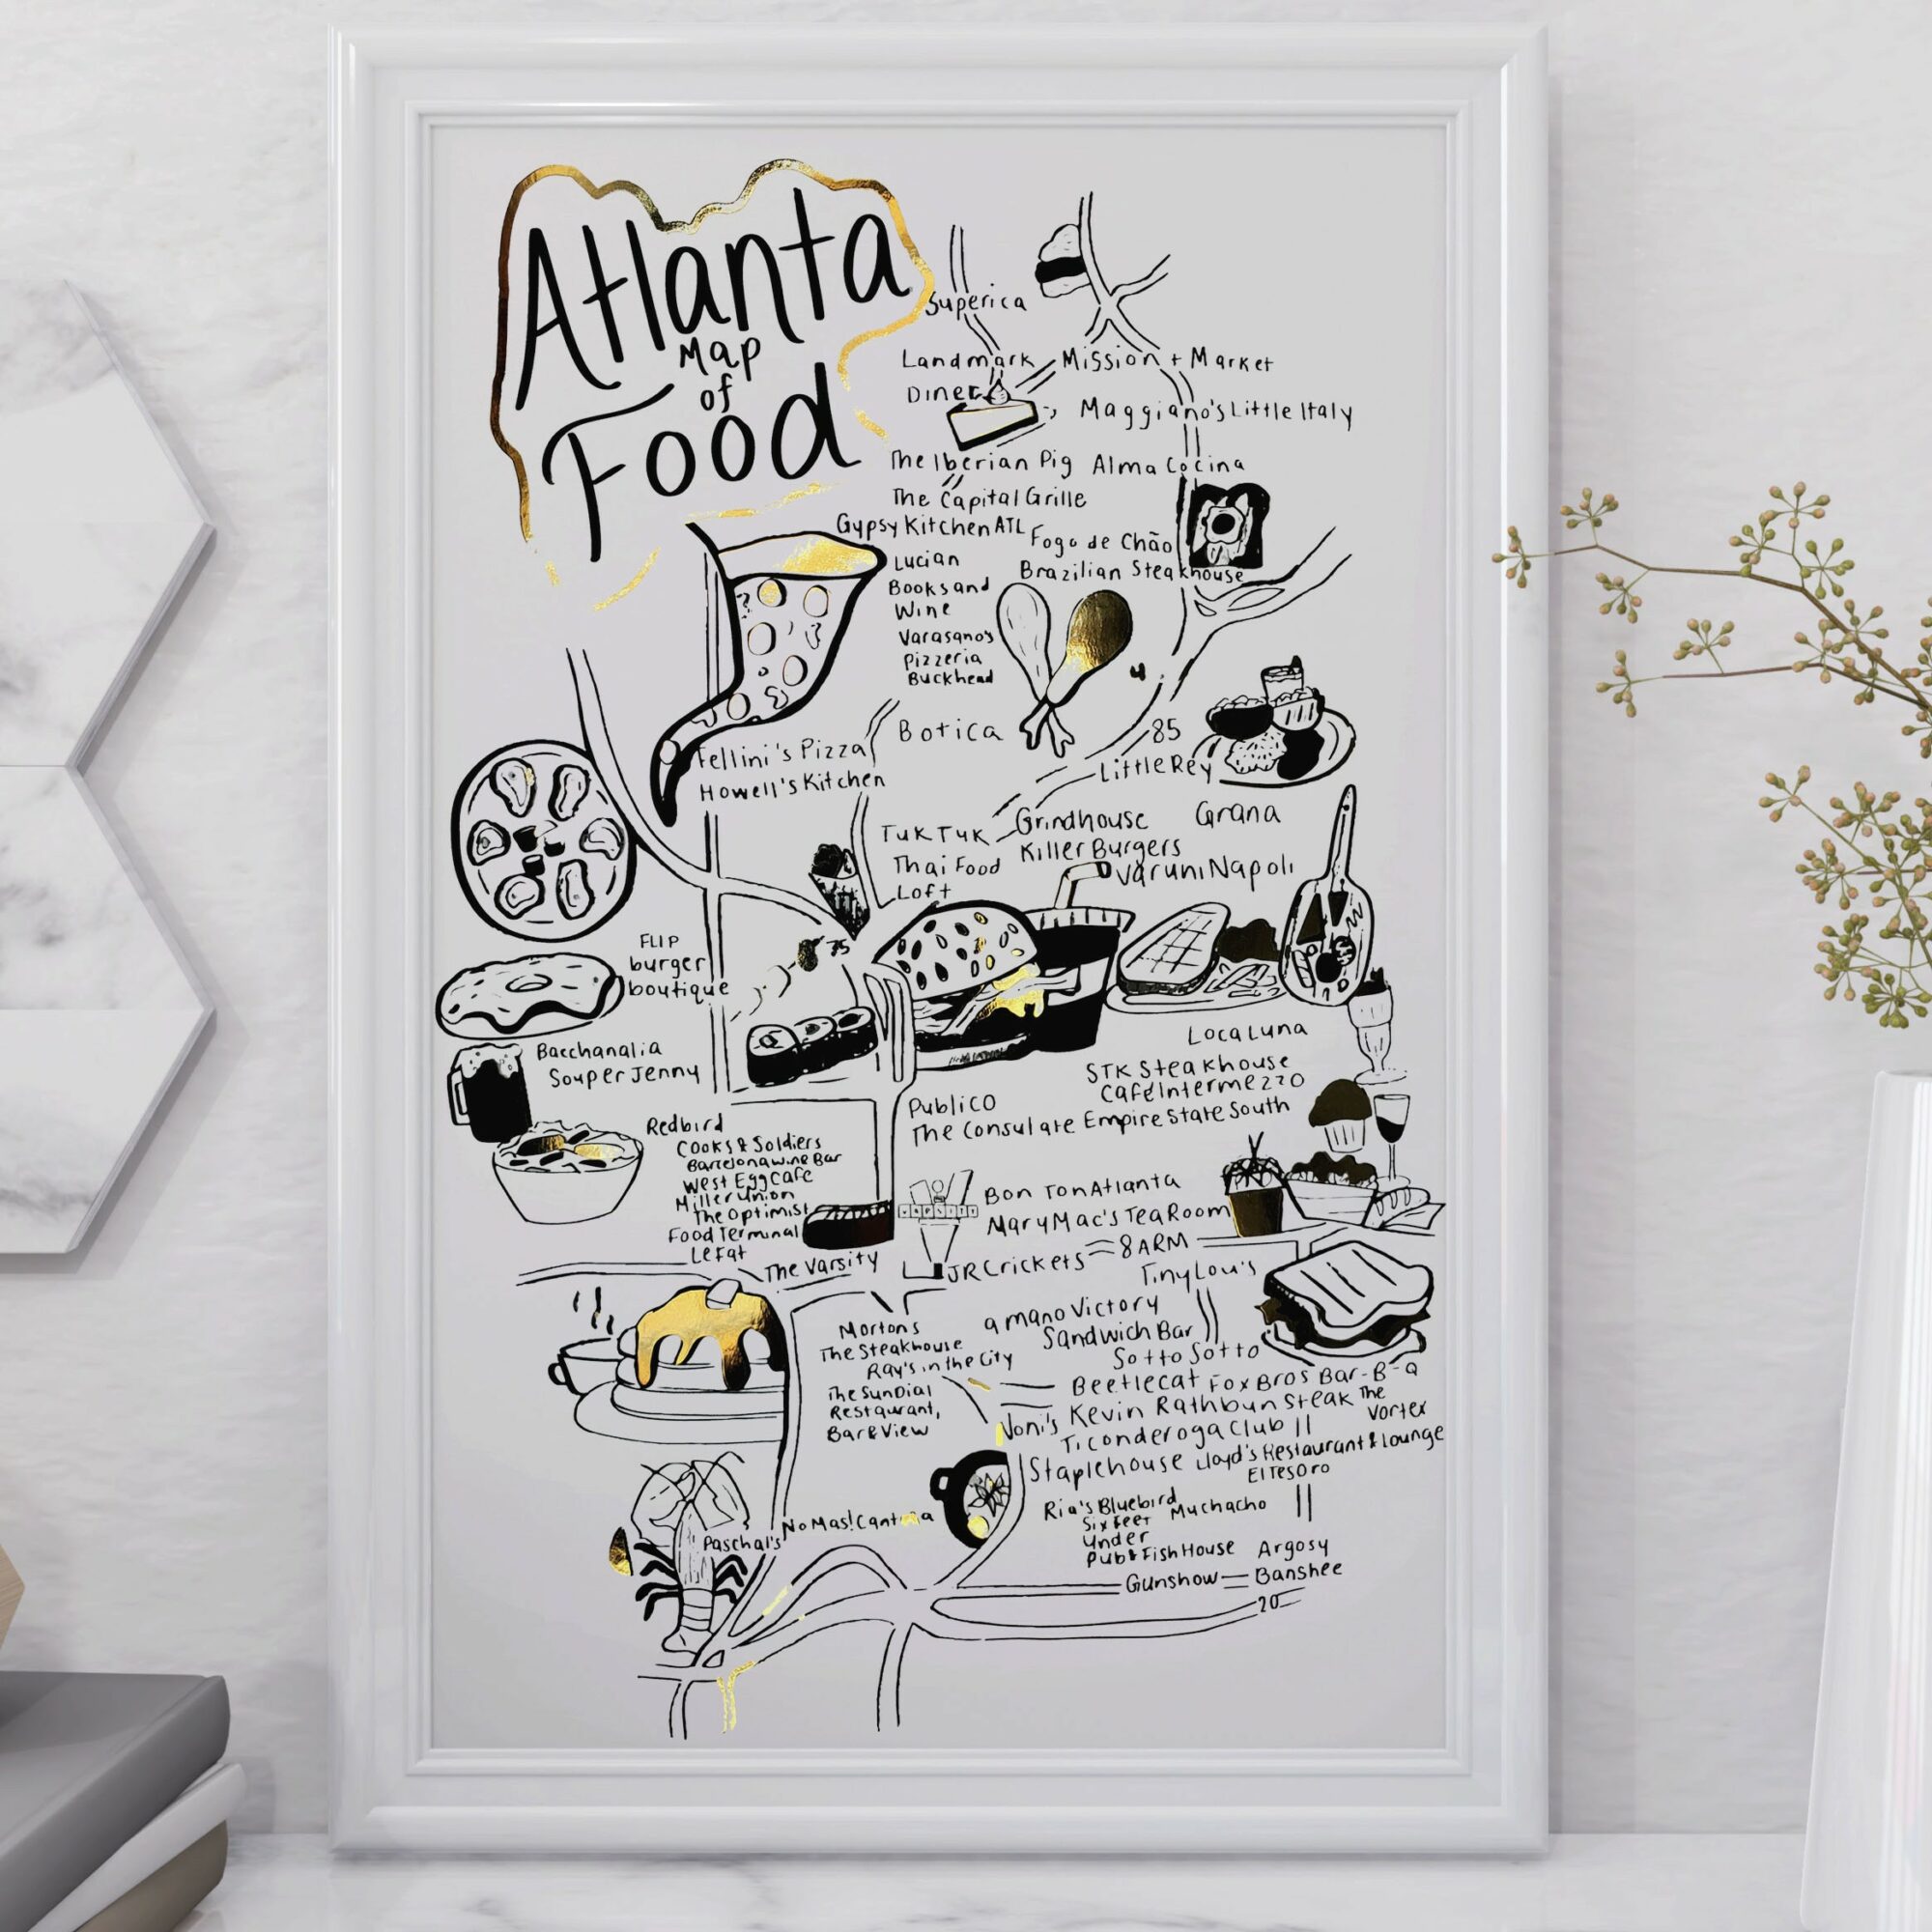 Atlanta
Map
of
Food
Superica
Landmark
Diner
Mission + Market
Maggiano's Little Italy
The Iberian Pig
Alma Cocina
The Capital Grille
Gypsy Kitchen ATL
Fogo de Chão
Brazilian Steakhouse
Lucian
Books and
Wine
Varasano's
Pizzeria
Buckhead
Botica
85
Little Rey
Fellini's Pizza
Howell's Kitchen
Tuk Tuk
Thai Food
Loft
Grindhouse
Killer Burgers
Grana
Varuni Napoli
FLIP
burger
boutique
75
Bacchanalia
Souper Jenny
Loca Luna
STK Steakhouse
Café Intermezzo
Publico
The Consulate Empire State South
Redbird
Cooks & Soldiers
Barcelona Wine Bar
West Egg Cafe
Miller Union
The Optimist
Food Terminal
Le Fat
The Varsity
VARSITY
Bon Ton Atlanta
Mary Mac's Tea Room
JR Crickets
8ARM
Tiny Lou's
a mano Victory
Sandwich Bar
Sotto Sotto
Mortons
The Steakhouse
Ray's in the City
The Sun Dial
Restaurant,
Bar & View
Beetlecat Fox Bros Bar-B-Q
Noni's Kevin Rathbun Steak The
Vortex
Ticonderoga Club
Staplehouse Lloyd's Restaurant & Lounge
El Tesoro
Ria's Bluebird
Muchacho
Six Feet
Under
Pub & Fish House
Argosy
Gunshow
Banshee
20
No Mas! Cantina
Paschal's